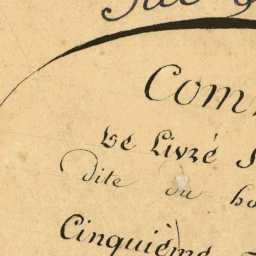 Com
Le Livré
dite du
Cinquième